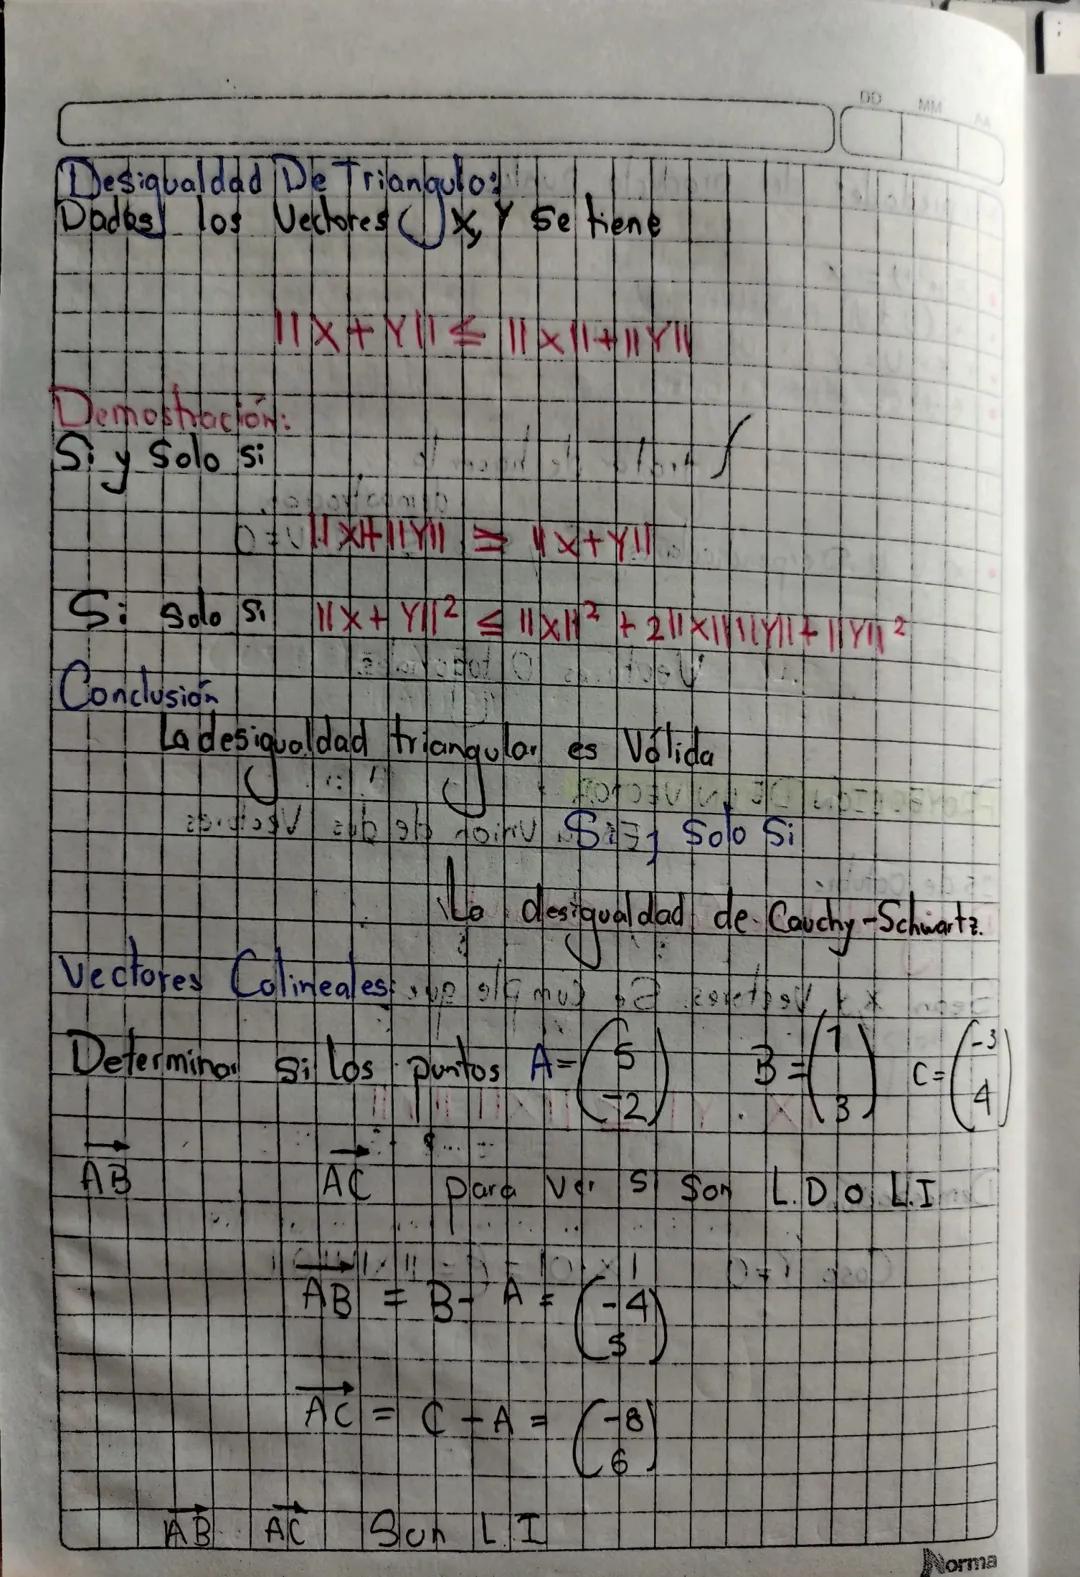 DD MM AA
Desigualdad De Triangulo:
Dados los Vectores X, Y Se tiene
||X + Y|| ≤ ||X||+||Y||
Demostración:
Si y Solo si
||X||+||Y|| ≥ ||X+Y||
Si solo si ||X + Y||² ≤ ||X||² + 2||X||||Y|| + ||Y||²
Conclusión
La desigualdad triangular es Válida
Si y Solo Si
La desigualdad de Cauchy-Schwartz.
Vectores Colineales:
Determinar si los puntos A=(5 -2) B=(1 3) C=(-3 4)
AB AC para Ver si Son L.D o L.I
AB = B - A = (-4 5)
AC = C - A = (-8 6)
AB AC Son L.I
Norma